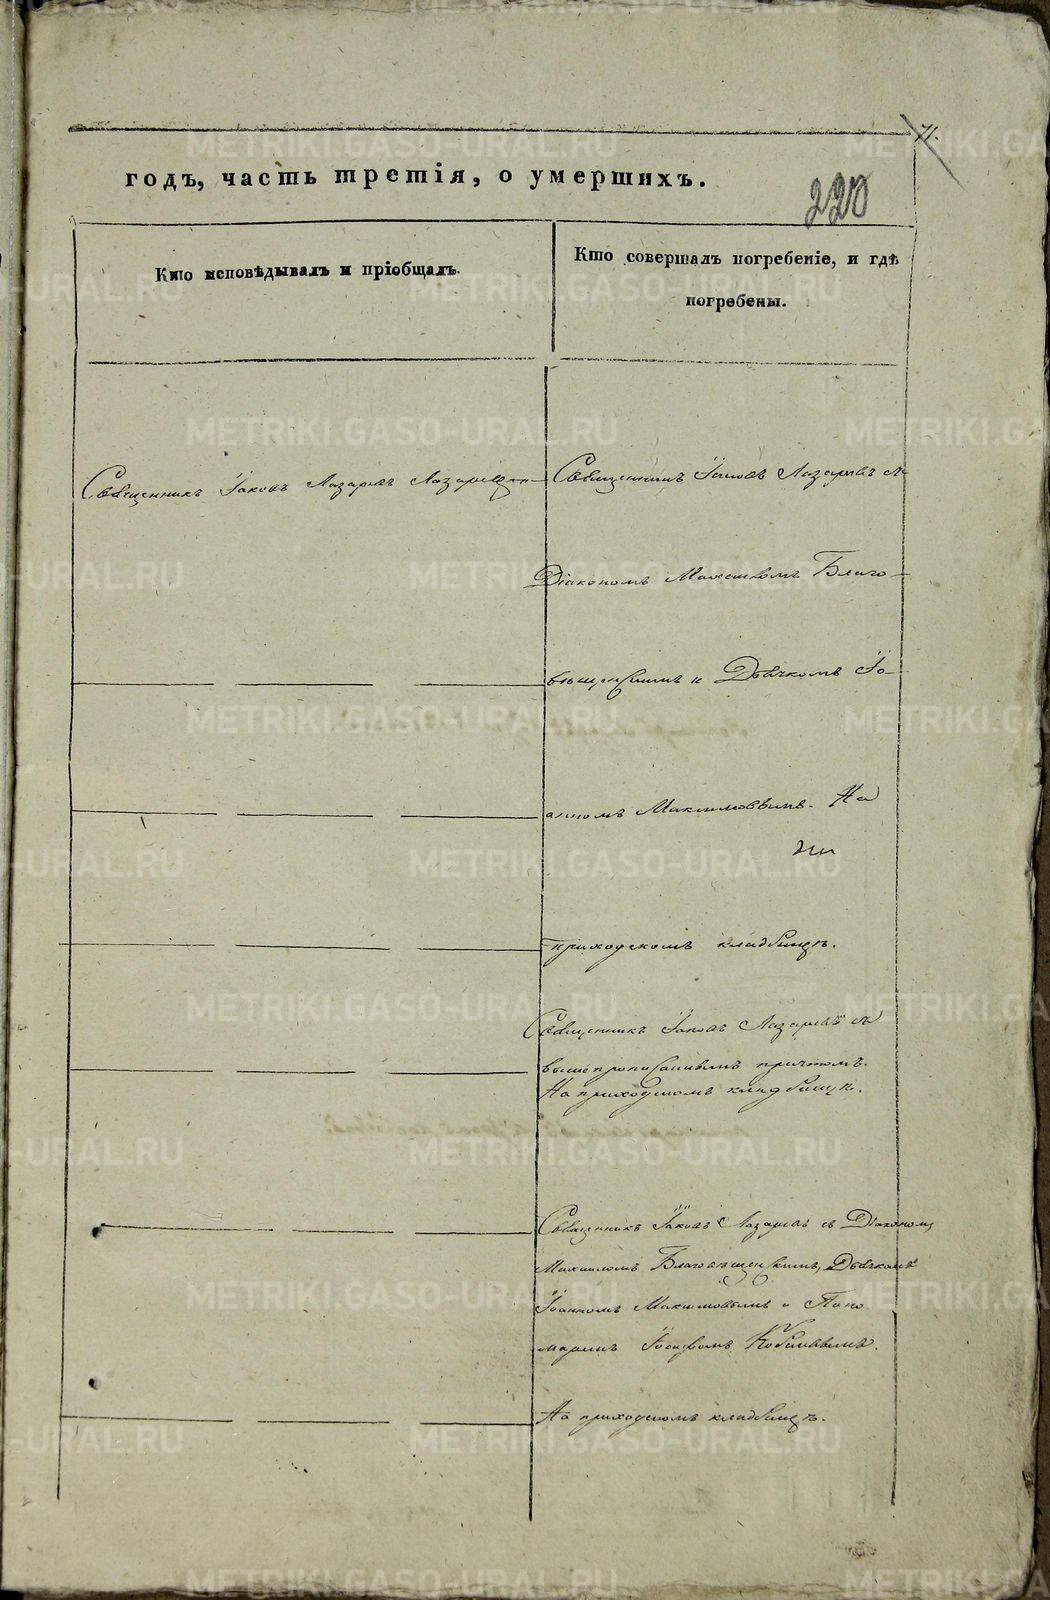 71.
годъ, часть третія, о умершихъ.
220
Кто исповѣдывалъ и пріобщалъ.
Кто совершалъ погребеніе, и гдѣ
погребены.
Священникъ Іаковъ Лазаревъ
Священникъ Іаковъ Лазаревъ съ
Діакономъ Максимомъ Благо-
вѣщенскимъ и Дьячкомъ Іо-
анномъ Максимовымъ. На
приходскомъ кладбищѣ.
Священникъ Іаковъ Лазаревъ съ
вышепрописаннымъ причтомъ.
На приходскомъ кладбищѣ.
Священникъ Іаковъ Лазаревъ съ Діакономъ
Максимомъ Благовѣщенскимъ, Дьячкомъ
Іоанномъ Максимовымъ и Поно-
маремъ Іосифомъ
На приходскомъ кладбищѣ.
METRIKI.GASO-URAL.RU